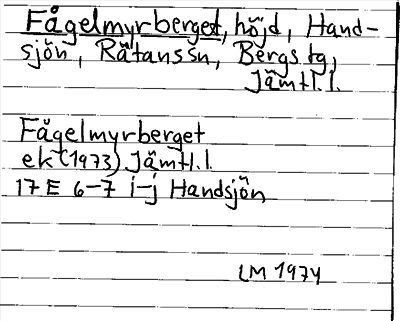 Fågelmyrberget, höjd, Hand-
sjön, Rätanssn, Bergs tg,
Jämtl.l.
Fågelmyrberget
ek (1973) Jämtl.l.
17 E 6-7 i-j Handsjön
LM 1974